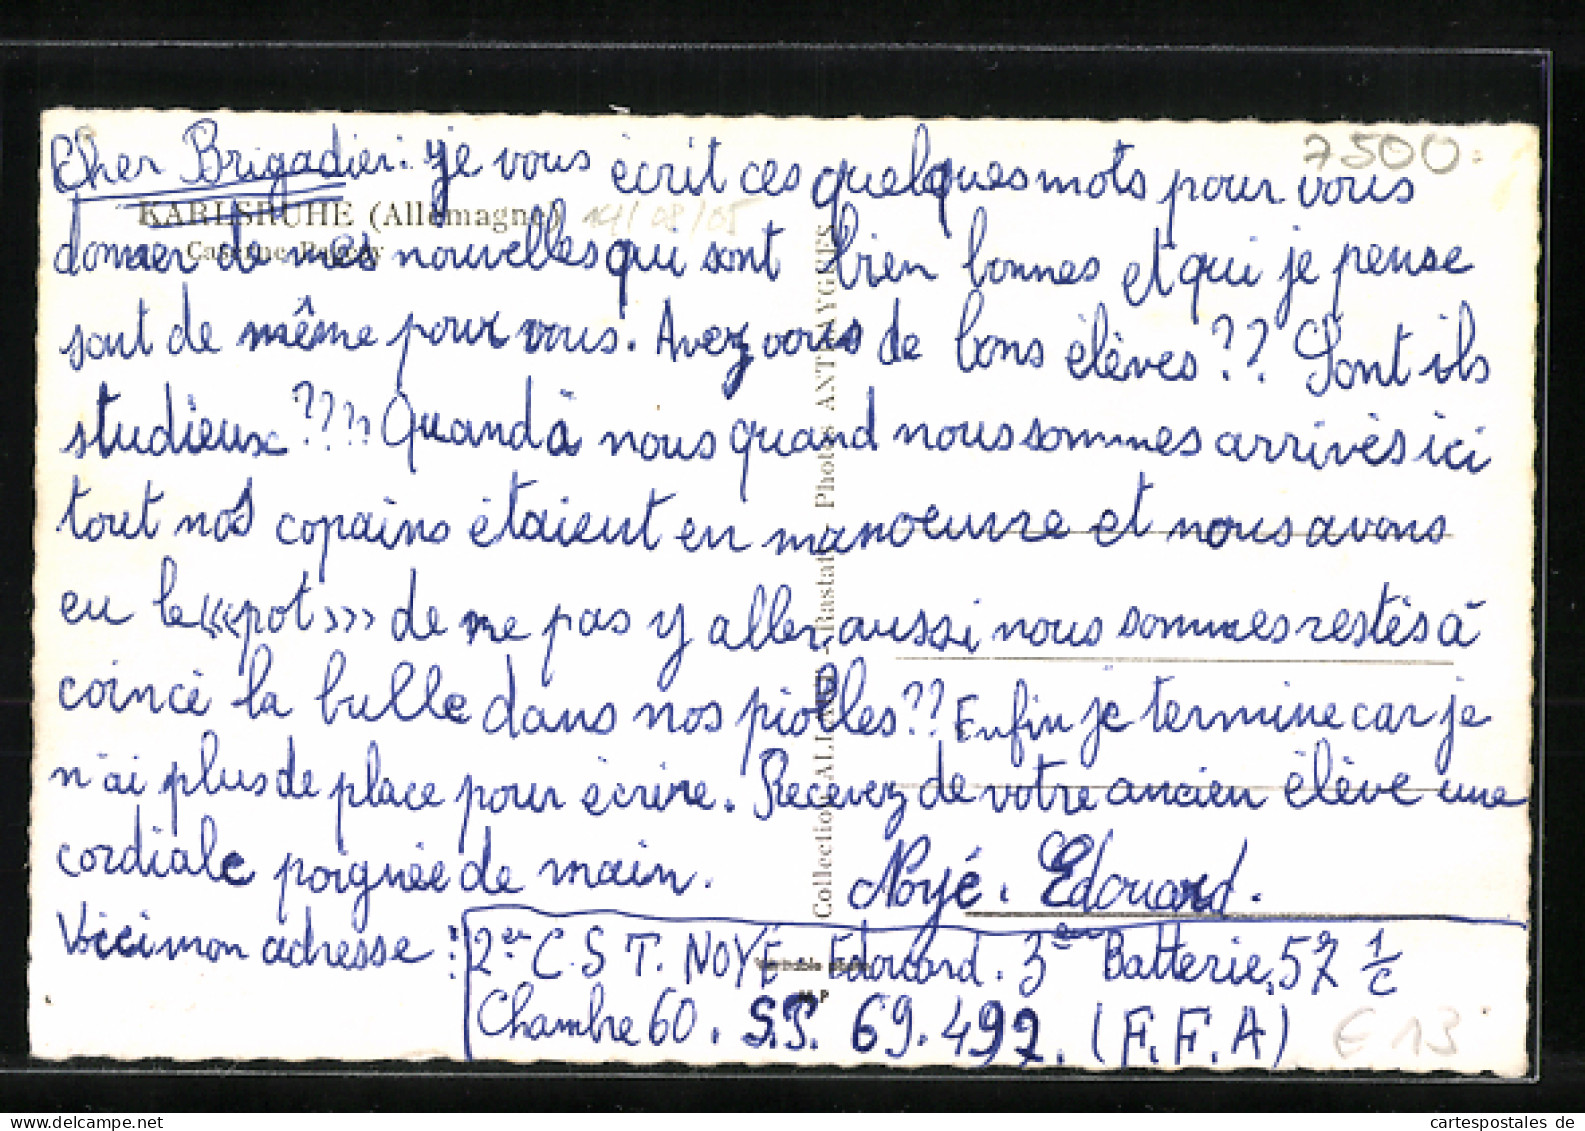 Cher Brigadier: je vous écrit ces quelques mots pour vous
7500
KARLSRUHE (Allemagne)
14/08/05
donner de mes nouvelles qui sont bien bonnes et qui je pense
Caserne
sont de même pour vous. Avez vous de bons élèves?? Sont ils
studieux???? Quand à nous quand nous sommes arrivés ici
tout nos copains étaient en manoeuvre et nous avons
eu le «««pot»»» de ne pas y aller, aussi nous sommes restés à
coincé la bulle dans nos piolles?? Enfin je termine car je
n'ai plus de place pour écrire. Recevez de votre ancien élève une
cordiale poignée de main. Noyé. Edouard.
Voici mon adresse: 2em C.S T. NOYÉ Edouard. 3em Batterie, 57 1/c
Chambre 60. S.P. 69.497. (F.F.A)
Collection - Rastatt Photos
€ 13
cartespostales de